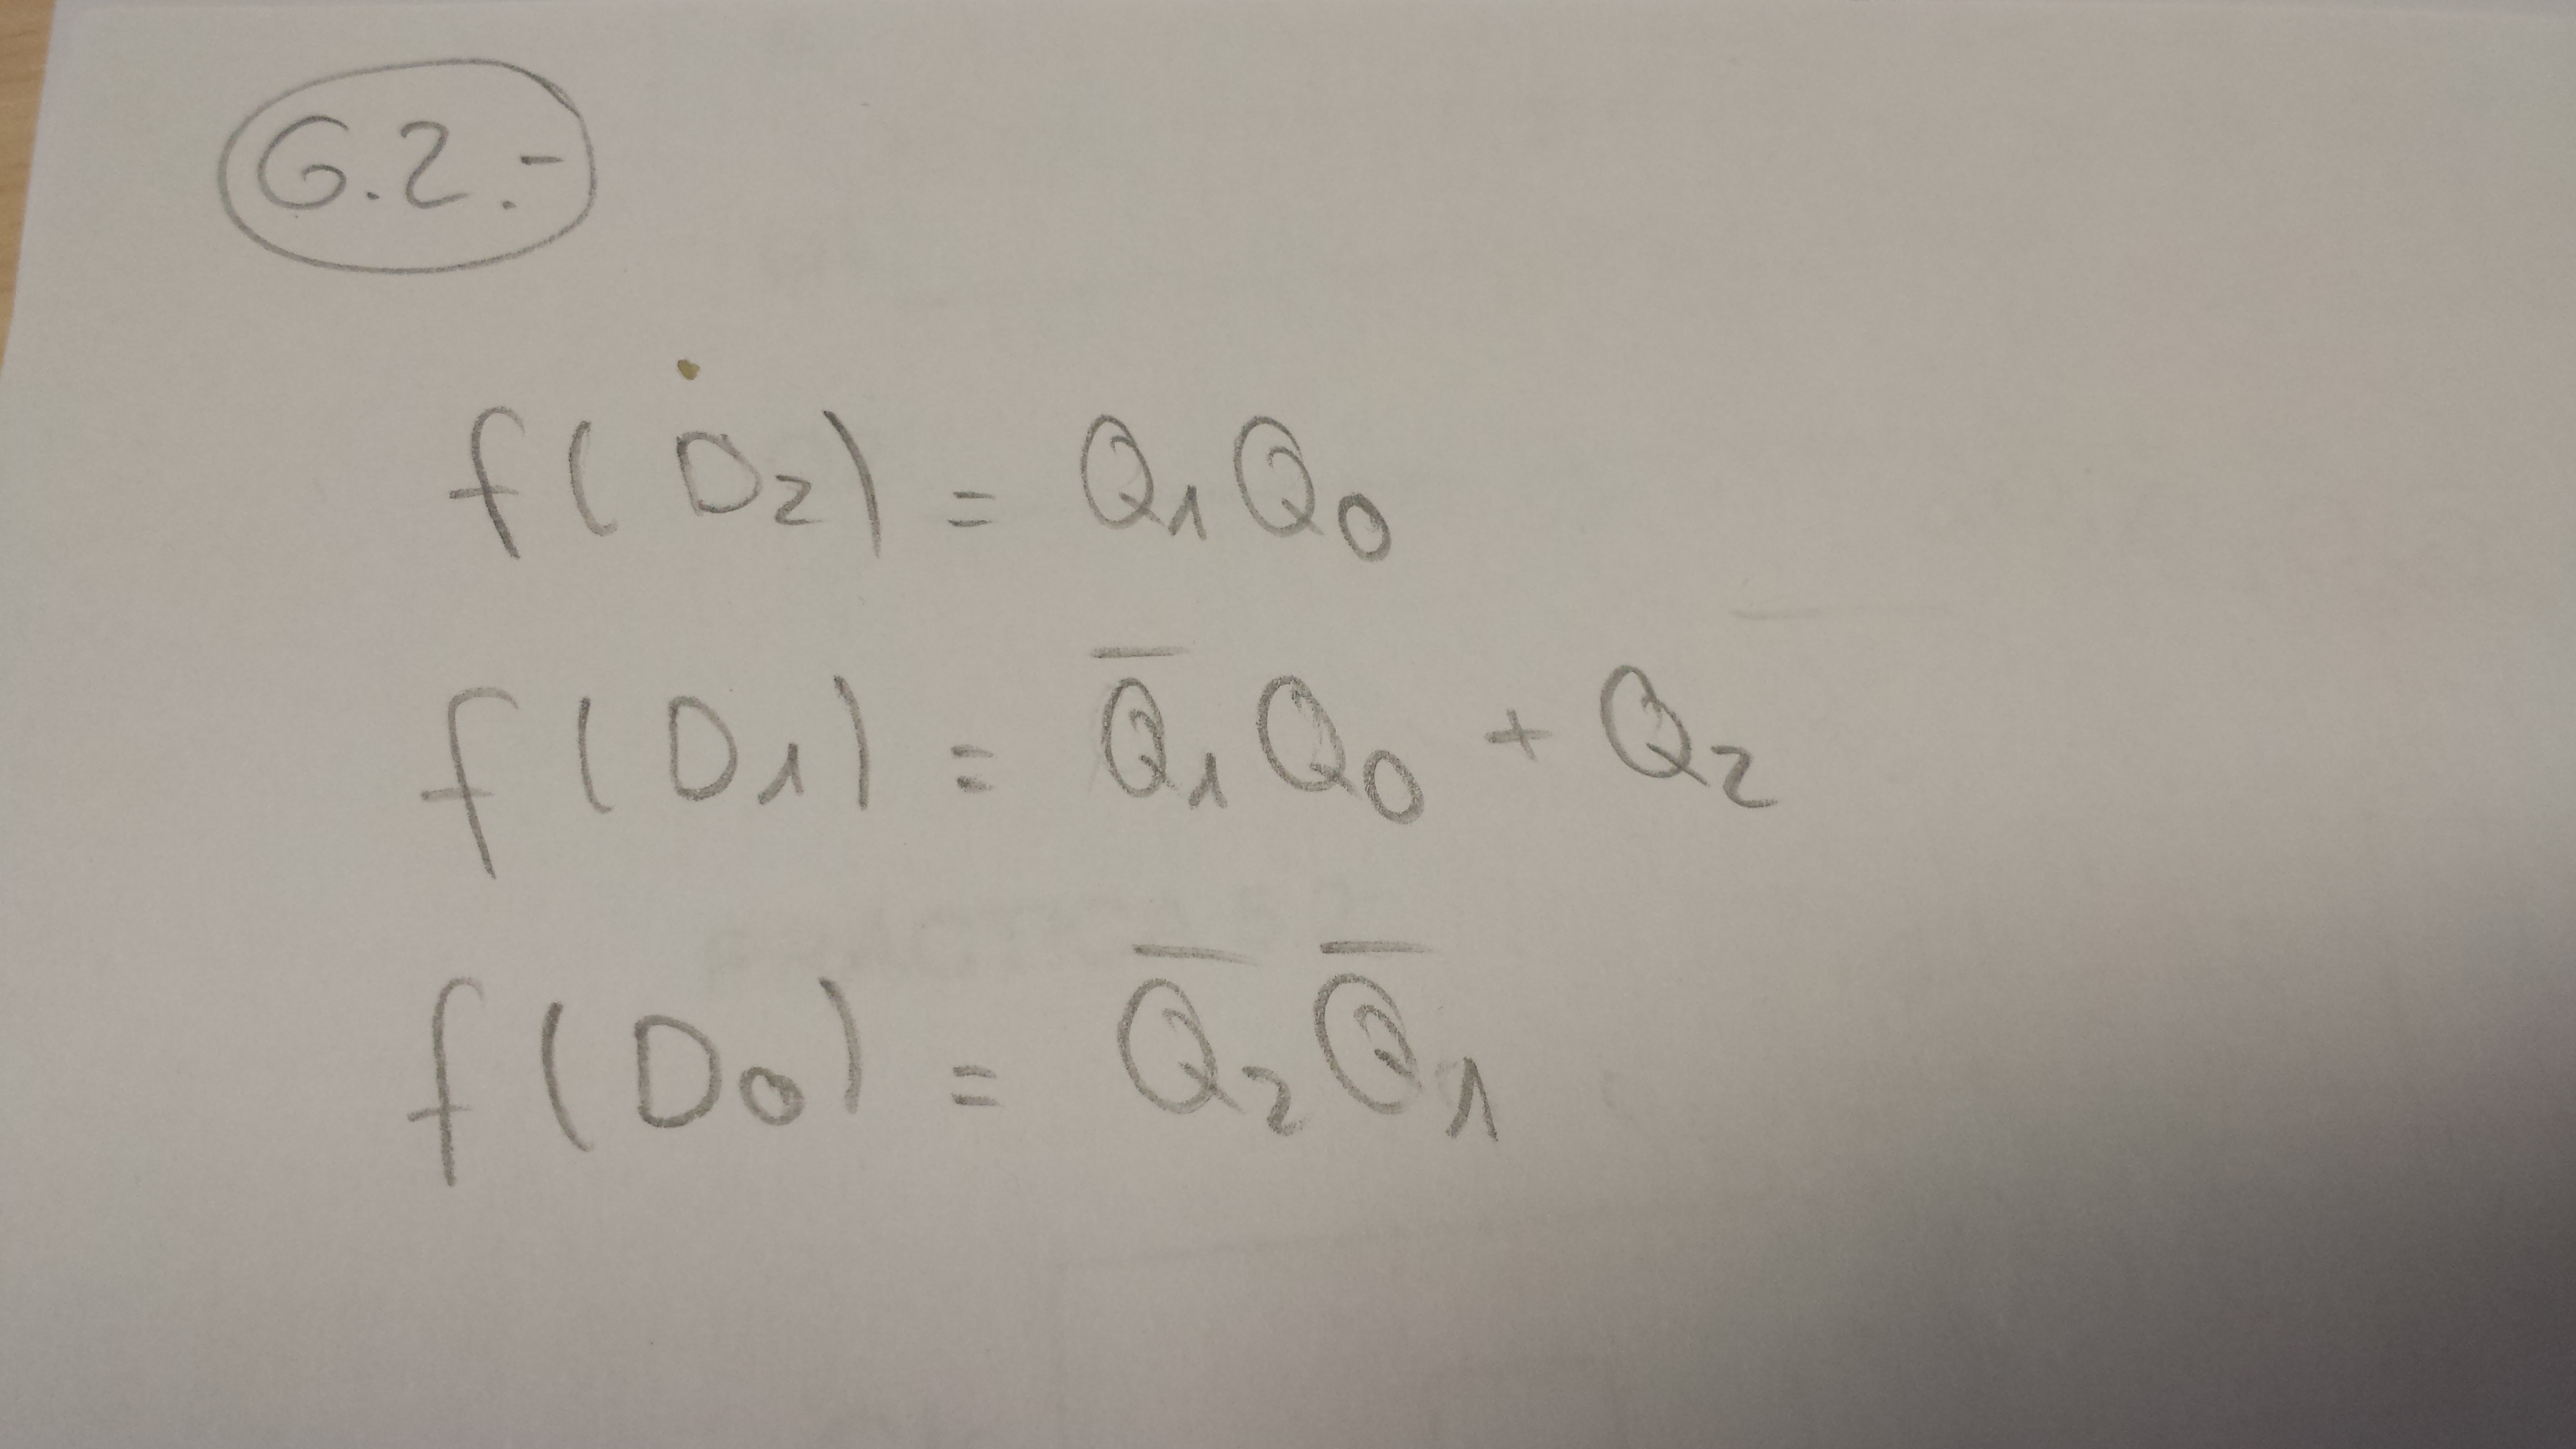 6.2.-
f(D₂) = Q₁Q₀
f(D₁) = Q̅₁Q₀ + Q₂
f(D₀) = Q̅₂Q̅₁